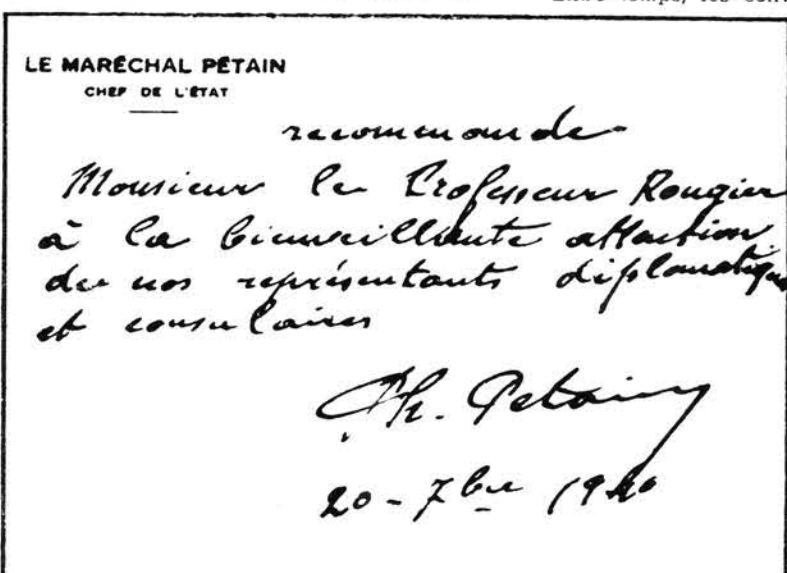 LE MARÉCHAL PÉTAIN
CHEF DE L'ÉTAT
recommande
Monsieur le Professeur Rougier
à la bienveillante attention
de nos représentants diplomatiques
et consulaires
Ph. Pétain
20 - 7bre 1940